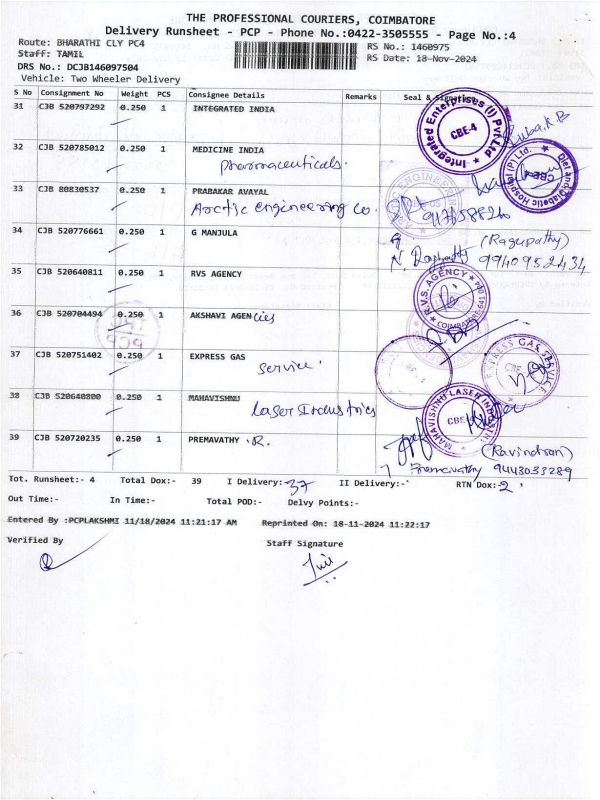 THE PROFESSIONAL COURIERS, COIMBATORE
Delivery Runsheet - PCP - Phone No.:0422-3505555 - Page No.:4
Route: BHARATHI CLY PC4 RS No.: 1460975
Staff: TAMIL RS Date: 18-Nov-2024
DRS No.: DCJB146097504
Vehicle: Two Wheeler Delivery
S No Consignment No Weight PCS Consignee Details Remarks Seal &
31 CJB 520797292 0.250 1 INTEGRATED INDIA
Integrated Enterprises (I) Pvt Ltd CBE-4
Suba.K.B
32 CJB 520785012 0.250 1 MEDICINE INDIA
pharmaceuticals.
33 CJB 80830537 0.250 1 PRABAKAR AVAYAL
Arctic engineering co.
34 CJB 520776661 0.250 1 G MANJULA
(Ragupathy)
9940952434
35 CJB 520640811 0.250 1 RVS AGENCY
R.V.S. AGENCY
36 CJB 520704494 0.250 1 AKSHAVI AGEN cies
PCP
37 CJB 520751402 0.250 1 EXPRESS GAS
service.
38 CJB 520640800 0.250 1 MAHAVISHNU
Laser Industries
MAHAVISHNU LASER INDUSTRIES CBE
39 CJB 520720235 0.250 1 PREMAVATHY .R.
(Ravindran)
Premavathy 9443033289
Tot. Runsheet:- 4 Total Dox:- 39 I Delivery:- 37 II Delivery:- RTN Dox:- 2
Out Time:- In Time:- Total POD:- Delvy Points:-
Entered By :PCPLAKSHMI 11/18/2024 11:21:17 AM Reprinted On: 18-11-2024 11:22:17
Verified By Staff Signature